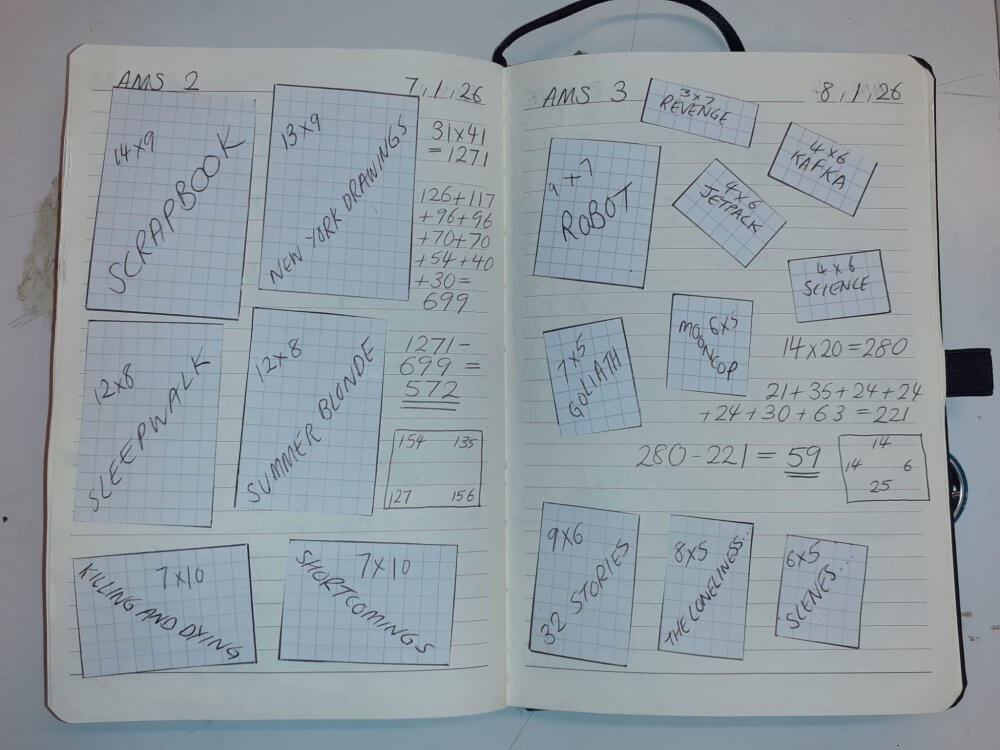 AMS 2
7,1,26
14x9
SCRAPBOOK
13x9
NEW YORK DRAWINGS
31x41
=1271
126+117
+96+96
+70+70
+54+40
+30=
699
12x8
SLEEPWALK
12x8
SUMMER BLONDE
1271-
699 =
572
154 135
127 156
7x10
KILLING AND DYING
7x10
SHORTCOMINGS
AMS 3
8,1,26
3x7
REVENGE
9+7
ROBOT
4x6
JETPACK
4x6
KAFKA
4x6
SCIENCE
7x5
GOLIATH
6x5
MOONCOP
14x20=280
21+35+24+24
+24+30+63=221
280-221=59
14
14 6
25
9x6
32 STORIES
8x5
THE LONELINESS...
6x5
SCENES...